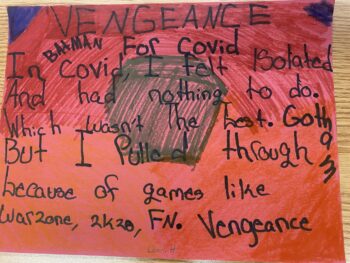 VENGEANCE
BATMAN For Covid
In Covid, I felt Isolated
And had nothing to do.
Which wasn't the best. Gotham
But I Pulled through
because of games like
warzone, 2k20, FN. Vengeance